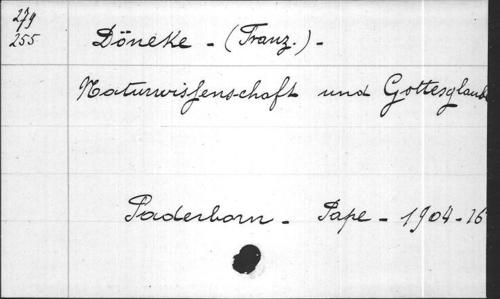 279
255
Döneke - (Franz.) -
Naturwissenschaft und Gottesglaube
Paderborn - Pape - 1904 - 16